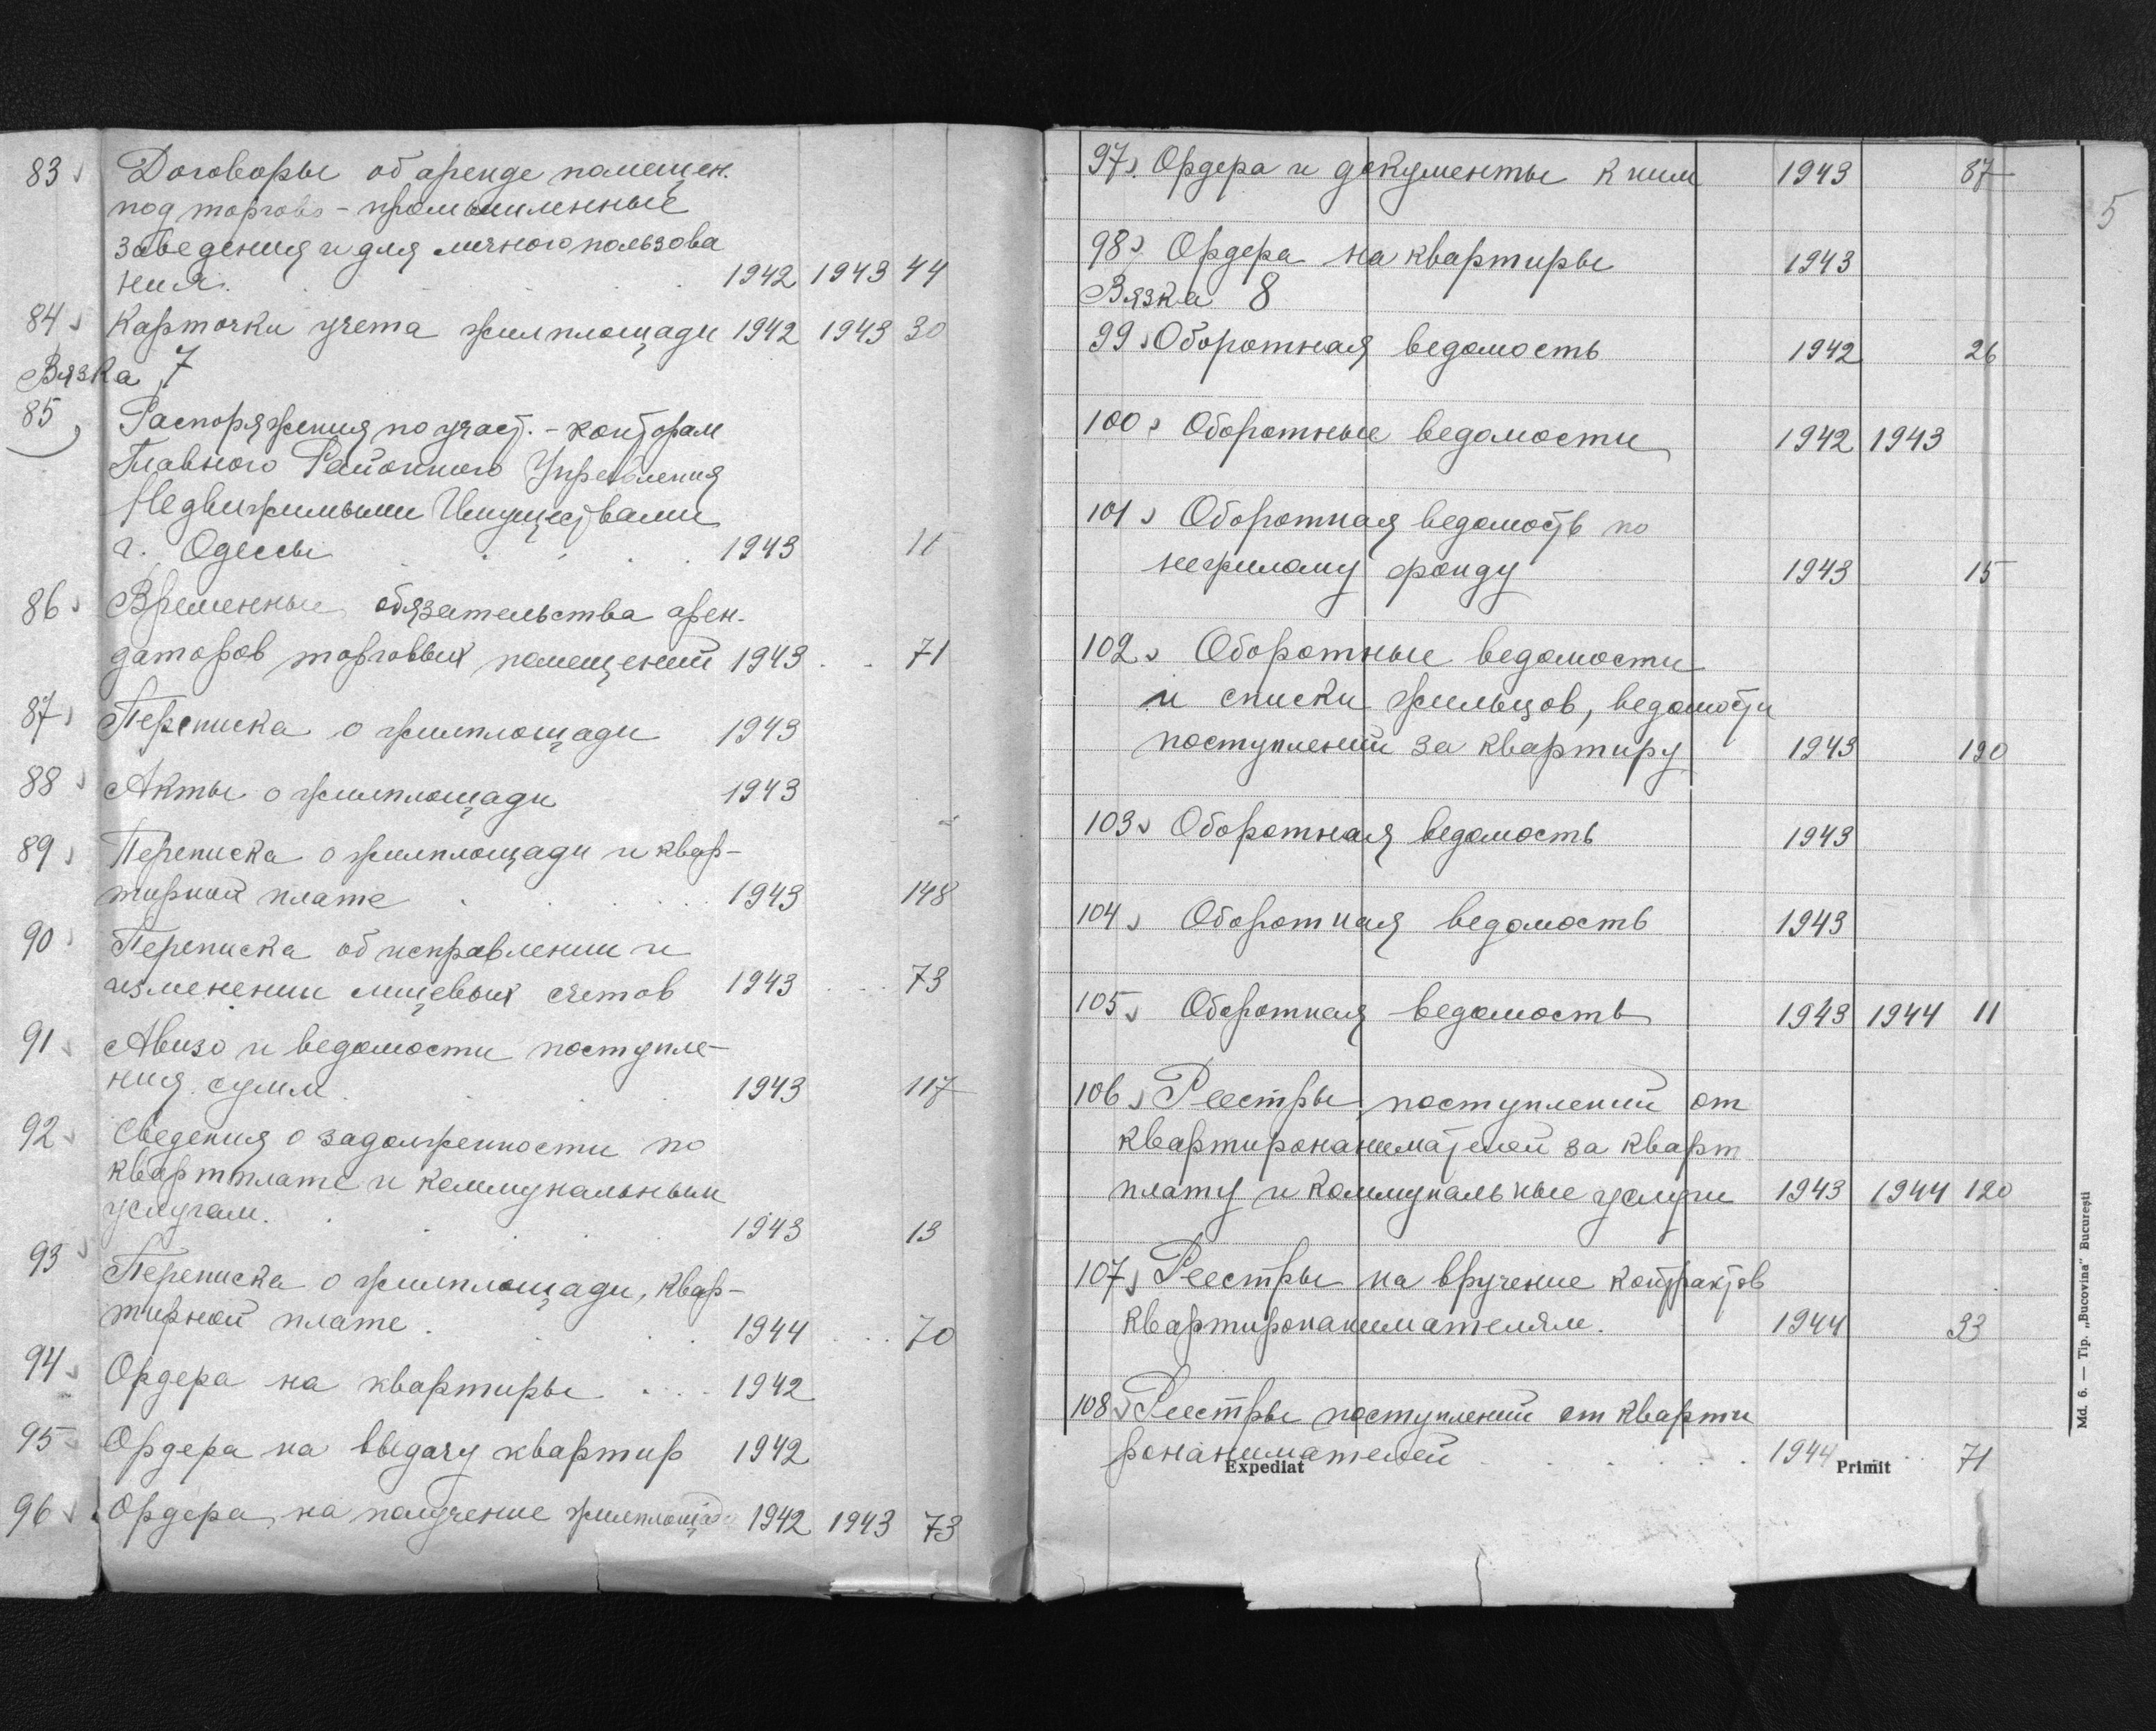 83 Договоры об аренде помещен.
под торгово-промышленные
заведения и для личного пользова
ния. 1942 1943 44
84 Карточки учета жилплощади 1942 1943 30
Вязка 7
85 Распоряжения по участ.-конторам
Главного Районного Управления
Недвижимыми Имуществами
г. Одессы 1943 11
86 Временные обязательства арен-
даторов торговых помещений 1943 71
87 Переписка о жилплощади 1943
88 Акты о жилплощади 1943
89 Переписка о жилплощади и квар-
тирной плате 1943 148
90 Переписка об исправлении и
изменении лицевых счетов 1943 73
91 Авизо и ведомости поступле-
ния сумм 1943 117
92 Сведения о задолженности по
квартплате и коммунальным
услугам. 1943 13
93 Переписка о жилплощади, квар-
тирной плате. 1944 70
94 Ордера на квартиры 1942
95 Ордера на выдачу квартир 1942
96 Ордера на получение жилплощади 1942 1943 73
5
97 Ордера и документы к ним 1943 87
98 Ордера на квартиры 1943
Вязка 8
99 Оборотная ведомость 1942 26
100 Оборотные ведомости 1942 1943
101 Оборотная ведомость по
нежилому фонду 1943 15
102 Оборотные ведомости
и списки жильцов, ведомости
поступлений за квартиру 1943 190
103 Оборотная ведомость 1943
104 Оборотная ведомость 1943
105 Оборотная ведомость 1943 1944 11
106 Реестры поступлений от
квартиронанимателей за кварт
плату и коммунальные услуги 1943 1944 120
107 Реестры на вручение контрактов
квартиронанимателям. 1944 33
108 Реестры поступлений от кварти
ронанимателей 1944 71
Expediat Primit
Md. 6. — Tip. „Bucovina" București